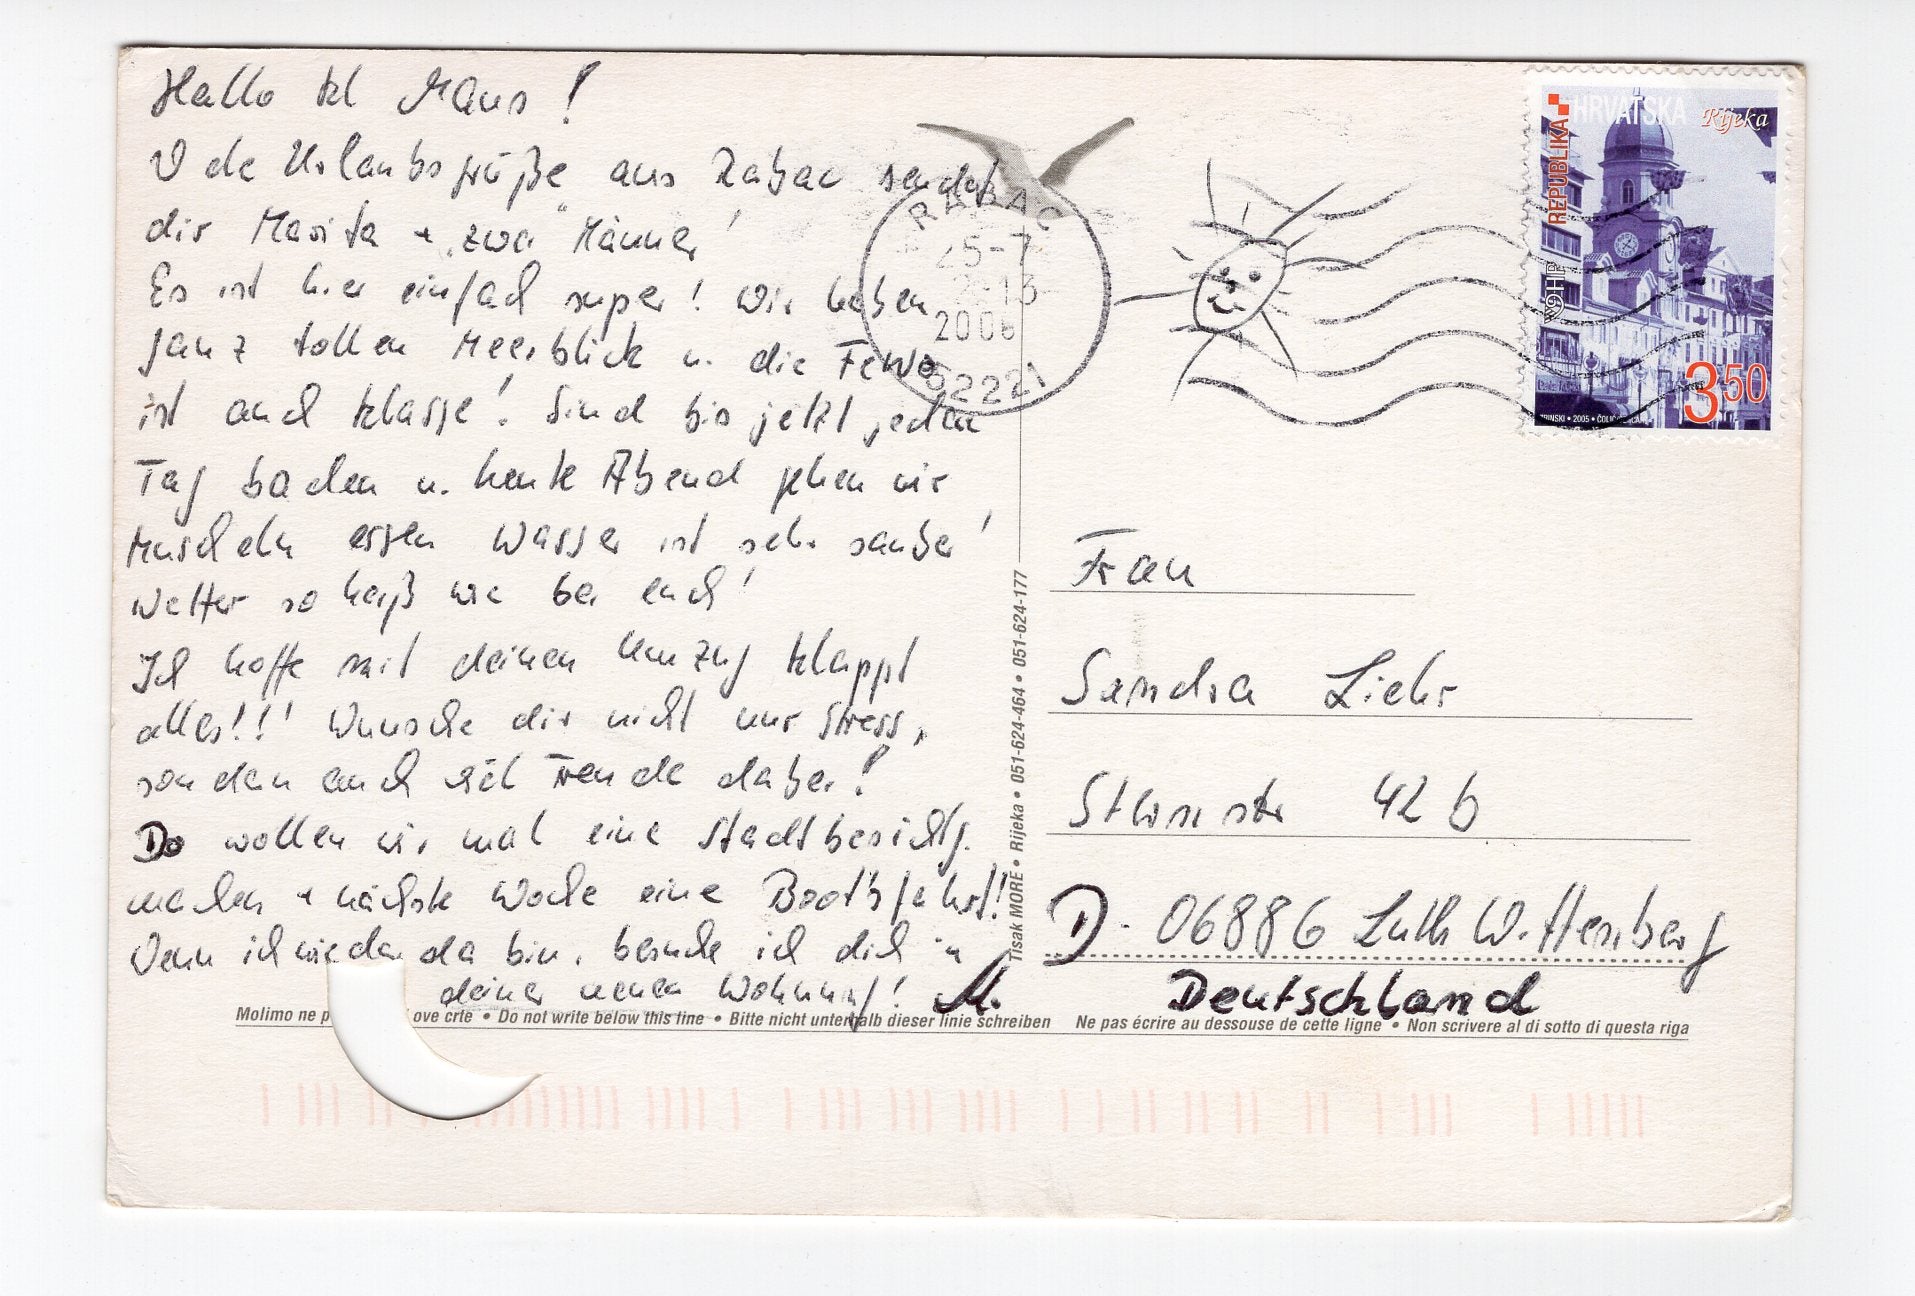 Hallo kl Maus!
Viele Urlaubsgrüße aus Rabac sendet
dir Marita + "zwei Männer"!
Es ist hier einfach super! Wir haben
ganz tollen Meerblick u. die FeWo
ist auch klasse! Sind bis jetzt jeden
Tag baden u. heute Abend gehen wir
Muscheln essen Wasser ist sehr sauber!
Wetter so heiß wie bei euch!
Ich hoffe mit deinen Umzug klappt
alles!!! Wünsche dir nicht nur Stress,
sondern auch viel Freude dabei!
Do wollen wir mal eine Stadtbesichtg.
machen + nächste Woche eine Bootsfahrt!
Wenn ich wieder da bin, besuche ich dich in
deiner neuen Wohnung! M.
RABAC
25-7
2006
52221
REPUBLIKA HRVATSKA
Rijeka
HP
3,50
ZRINSKI • 2005 •
Tisak MORE • Rijeka • 051-624-464 • 051-624-177
Frau
Sandra Liehr
42 b
D-06886 Luth Wittenberg
Deutschland
Molimo ne p ove crte • Do not write below this line • Bitte nicht unterhalb dieser linie schreiben Ne pas écrire au dessouse de cette ligne • Non scrivere al di sotto di questa riga